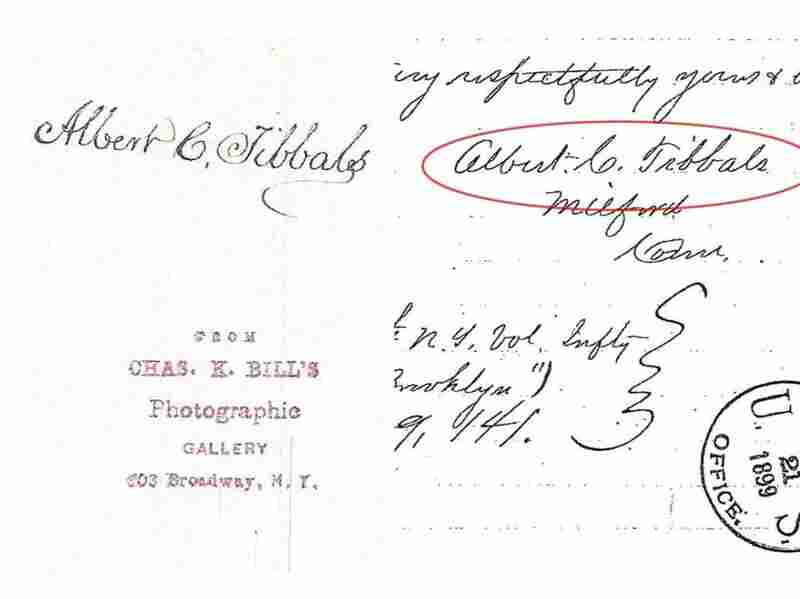 Albert C. Tibbals
FROM
CHAS. K. BILL'S
Photographic
GALLERY
603 Broadway, N. Y.
respectfully yours &
Albert. C. Tibbals
Milford
Conn.
N.Y. Vol. Infty
Brooklyn")
9, 141.
U. S.
21
1899
OFFICE.